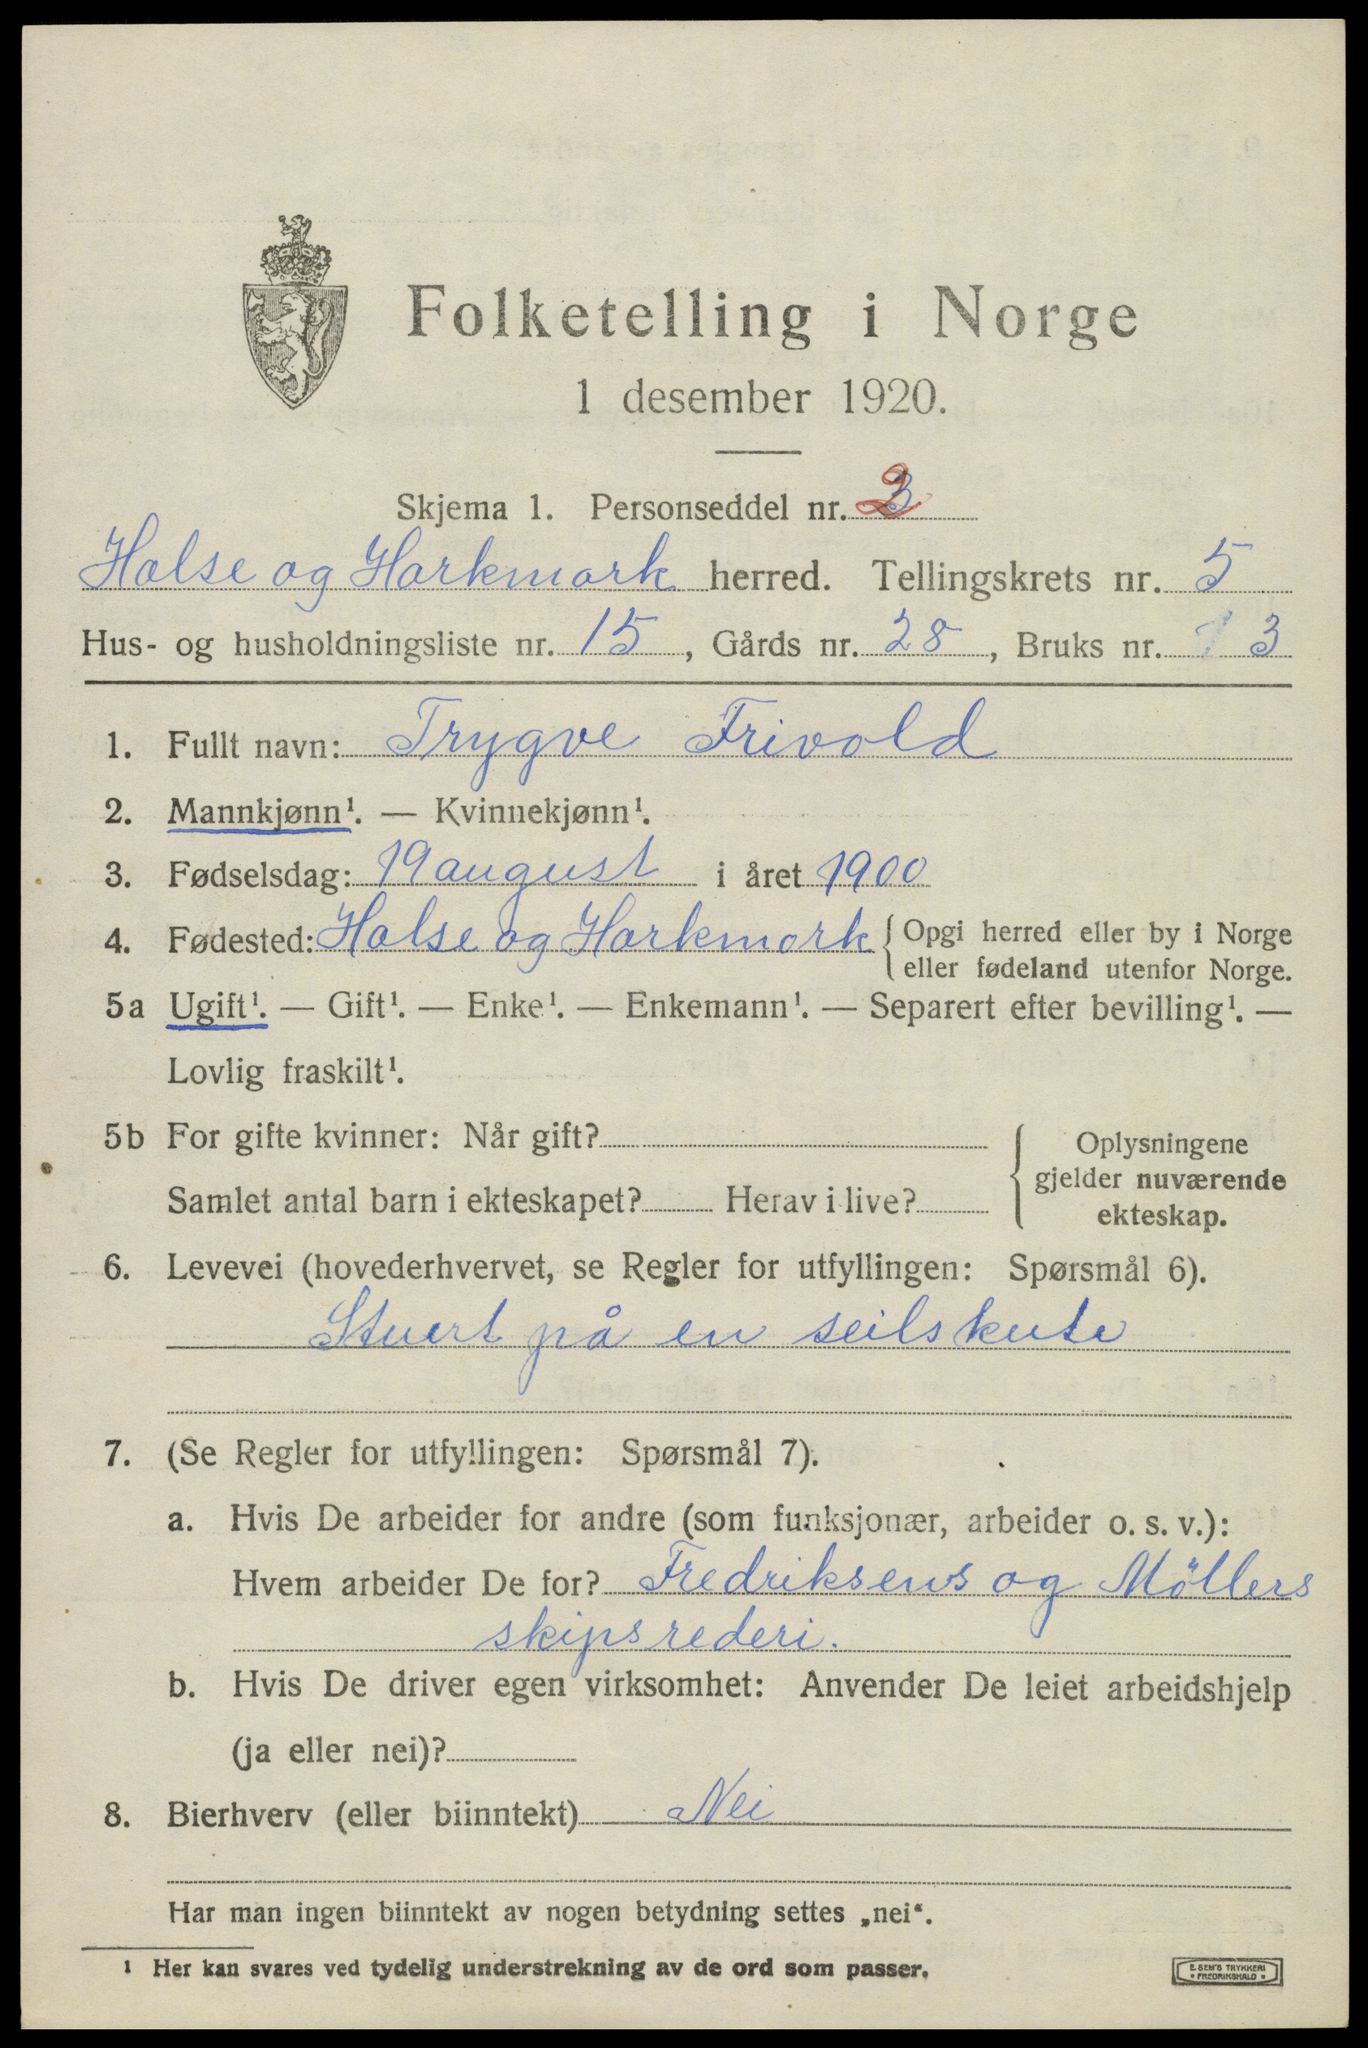 Folketelling i Norge
1 desember 1920.
Skjema 1. Personseddel nr. 2
Halse og Harkmark herred. Tellingskrets nr. 5
Hus- og husholdningsliste nr. 15, Gårds nr. 28, Bruks nr. 3
1. Fullt navn: Trygve Frivold
2. Mannkjønn¹. — Kvinnekjønn¹.
3. Fødselsdag: 19 august i året 1900
4. Fødested: Halse og Harkmark { Opgi herred eller by i Norge
eller fødeland utenfor Norge.
5a Ugift¹. — Gift¹. — Enke¹. — Enkemann¹. — Separert efter bevilling¹. —
Lovlig fraskilt¹.
5b For gifte kvinner: Når gift?
Samlet antal barn i ekteskapet? Herav i live?
Oplysningene
gjelder nuværende
ekteskap.
6. Levevei (hovederhvervet, se Regler for utfyllingen: Spørsmål 6).
Stuert på en seilskute
7. (Se Regler for utfyllingen: Spørsmål 7).
a. Hvis De arbeider for andre (som funksjonær, arbeider o. s. v.):
Hvem arbeider De for? Fredriksens og Möllers
skipsrederi.
b. Hvis De driver egen virksomhet: Anvender De leiet arbeidshjelp
(ja eller nei)?
8. Bierhverv (eller biinntekt) Nei
Har man ingen biinntekt av nogen betydning settes „nei“.
1 Her kan svares ved tydelig understrekning av de ord som passer.
E. SEM'S TRYKKERI
• FREDRIKSHALD •